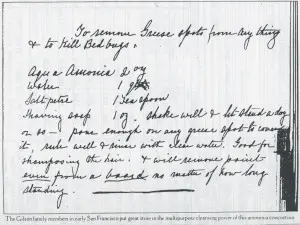 To remove Grease spots from any thing
& to Kill Bedbugs.
Aqua Amonia 2 oz
Water 1
Saltpetre 1 Teaspoon
Shaving soap 1 oz. shake well & let stand a day
or so – pore enough on any grease spot to cover
it, rub well & rinse with clear water. Good for
shampooing the hair. & will remove paint
even from a board no matter of how long
standing.
The Colson family members in early San Francisco put great store in the multipurpose cleansing power of this ammonia concoction